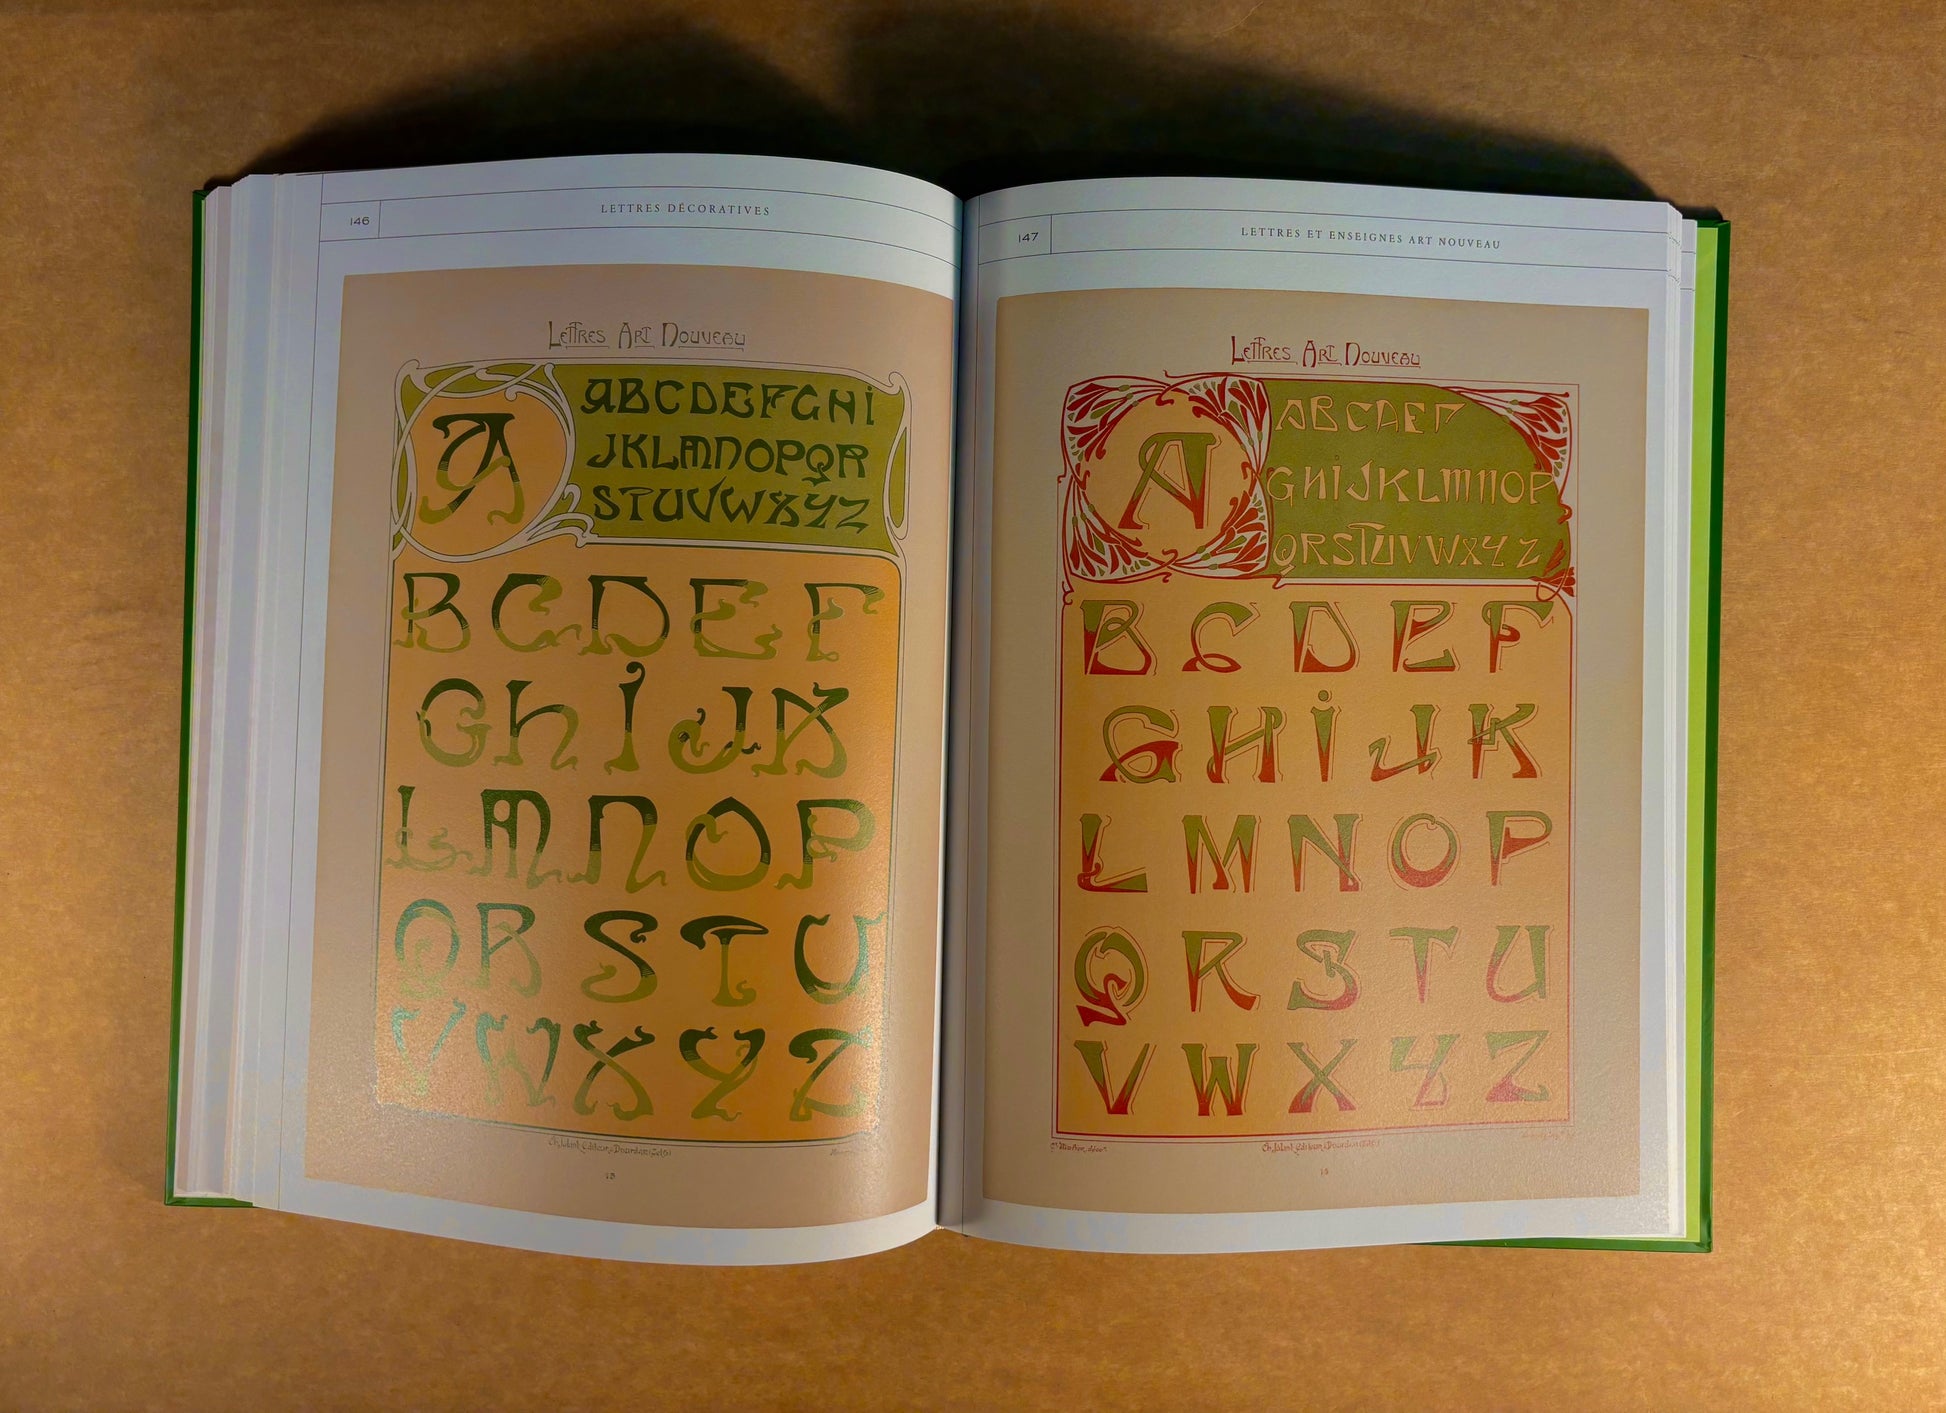 146
LETTRES DÉCORATIVES
Lettres Art Nouveau
A
ABCDEFGHi
JKLMNOPQR
STUVWXYZ
BCDEF
GhiJK
LMNOP
QRSTU
VWXYZ
Ch. Juliot, Editeur, Dourdan (S&O)
15
147
LETTRES ET ENSEIGNES ART NOUVEAU
Lettres Art Nouveau
A
ABCDEF
GHiJKLMNOP
QRSTUVWXYZ
BCDEF
GHiJK
LMNOP
QRSTU
VWXYZ
Ch. Juliot, Editeur, Dourdan (S&O)